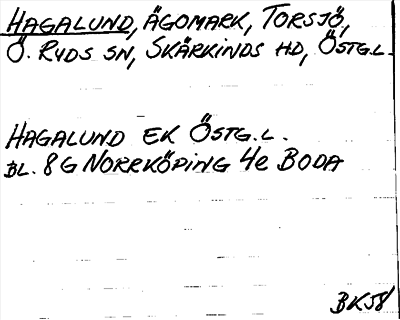 HAGALUND, ÄGOMARK, TORSJÖ,
Ö. RYDS SN, SKÄRKINDS HD, ÖSTG.L.
HAGALUND EK ÖSTG.L.
BL. 8G NORRKÖPING 4e BODA
BK58